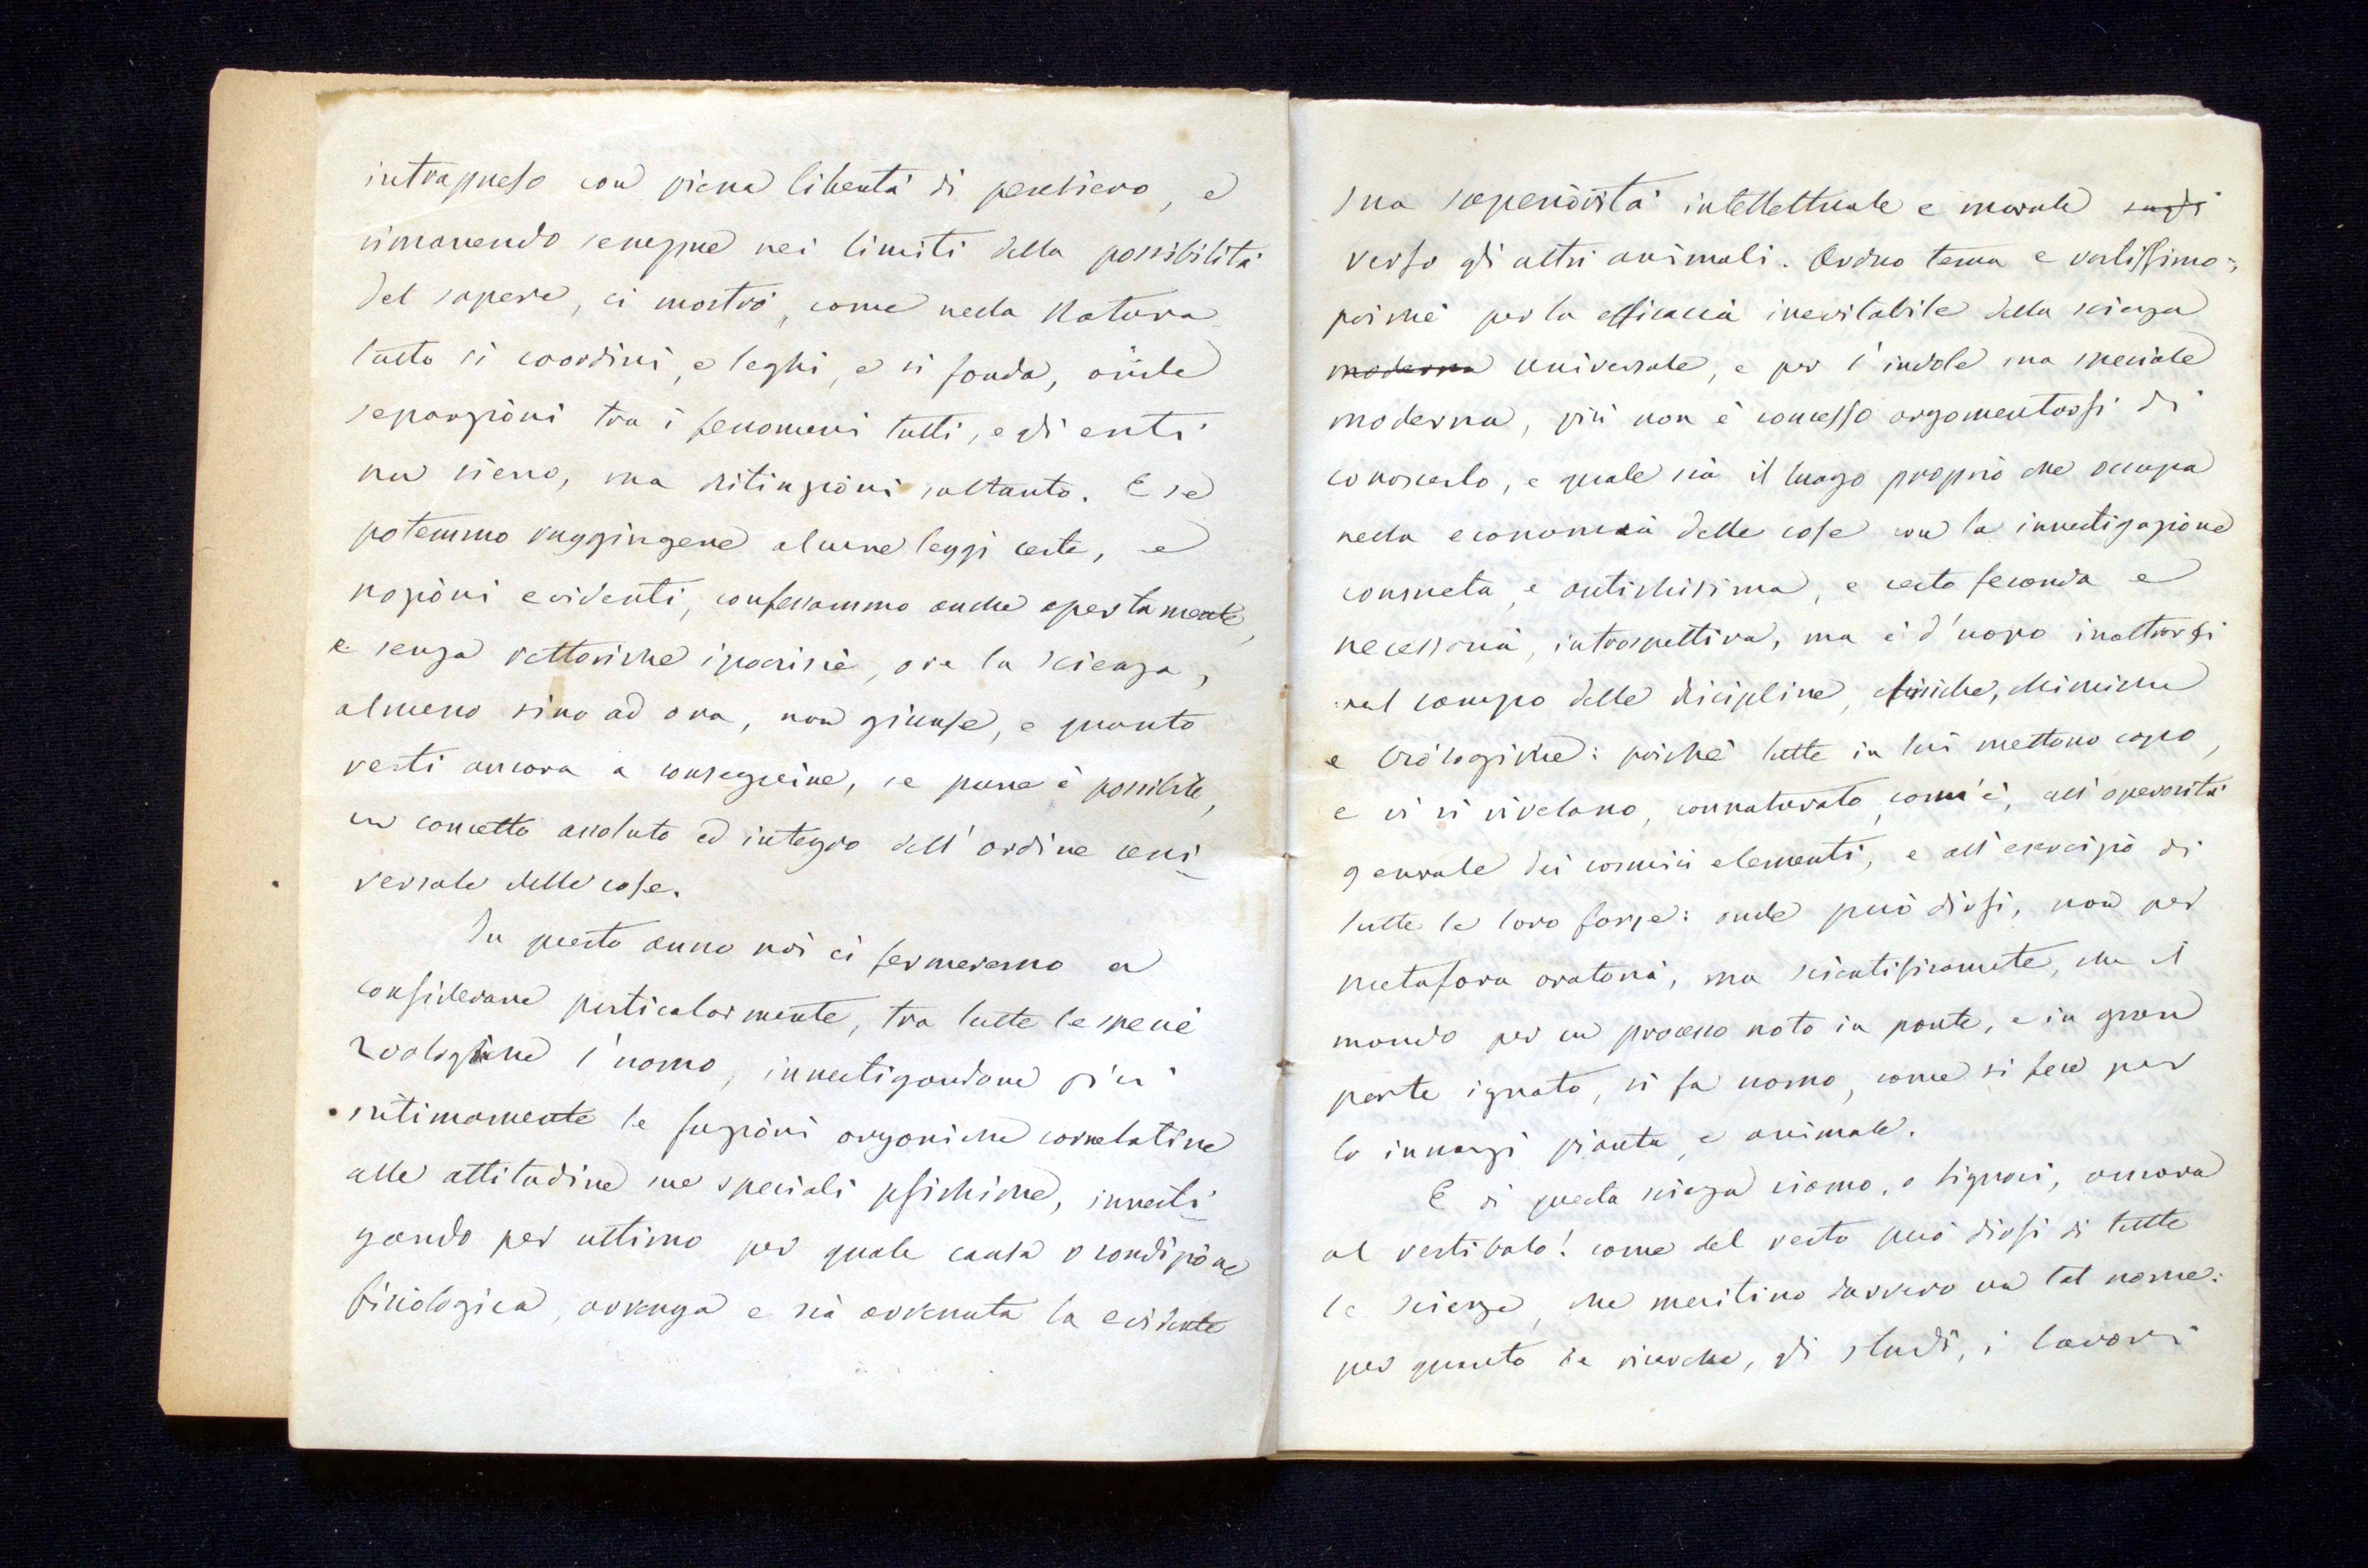 intrapreso con piena libertà di pensiero, e
rimanendo sempre nei limiti della possibilità
del sapere, ci mostrò, come nella Natura
tutto si coordini, e leghi, e si fonda, onde
separazioni tra i fenomeni tutti, e gli enti
non sieno, ma distinzioni soltanto. E se
potemmo raggiungere alcune leggi certe, e
nozioni evidenti, confessammo anche apertamente,
e senza rettoriche ipocrisie, ove la scienza,
almeno sino ad ora, non giunse, e quanto
resti ancora a conseguire, se pure è possibile,
un concetto assoluto ed integro dell'ordine uni-
versale delle cose.
In questo anno noi ci fermeremo a
considerare particolarmente, tra tutte le specie
zoologiche l'uomo, investigandone più
intimamente le funzioni organiche correlative
alle attitudine sue speciali psichiche, investi-
gando per ultimo per quale causa o condizione
fisiologica, avvenga e sia avvenuta la evidente
sua superiorità intellettuale e morale sugli
verso gli altri animali. Arduo tema e vastissimo;
poichè per la efficacia inevitabile della scienza
moderna universale, e per l'indole sua speciale
moderna, più non è concesso argomentarsi di
conoscerlo, e quale sia il luogo proprio che occupa
nella economia delle cose con la investigazione
consueta, e antichissima, e certo feconda e
necessaria, introspettiva, ma è d'uopo inoltrarsi
nel campo delle discipline, fisiche, chimiche
e biologiche: poichè tutte in lui mettono capo,
e vi si rivelano, connaturato, com'è, all'operosità
generale dei cosmici elementi, e all'esercizio di
tutte le loro forze: onde può dirsi, non per
metafora oratoria, ma scientificamente, che il
mondo per un processo noto in parte, e in gran
parte ignoto, si fa uomo, come si fece per
lo innanzi pianta, e animale.
E di questa scienza siamo, o Signori, ancora
al vestibolo! come del resto può dirsi di tutte
le scienze, che meritino davvero un tal nome:
per quanto le ricerche, gli studi, i lavori